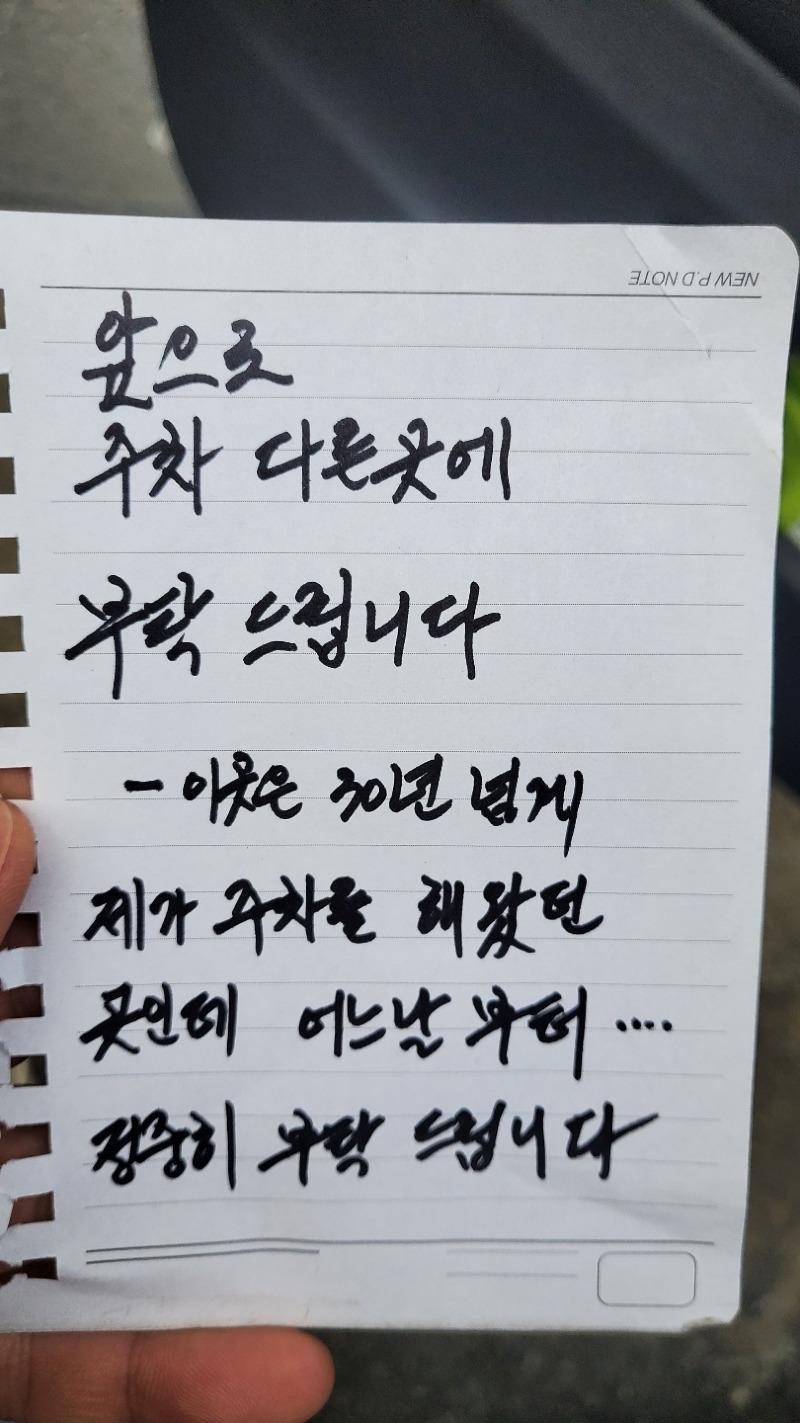 NEW P.D NOTE
앞으로
주차 다른곳에
부탁 드립니다
- 이곳은 30년 넘게
제가 주차를 해왔던
곳인데 어느날 부터 ....
정중히 부탁 드립니다